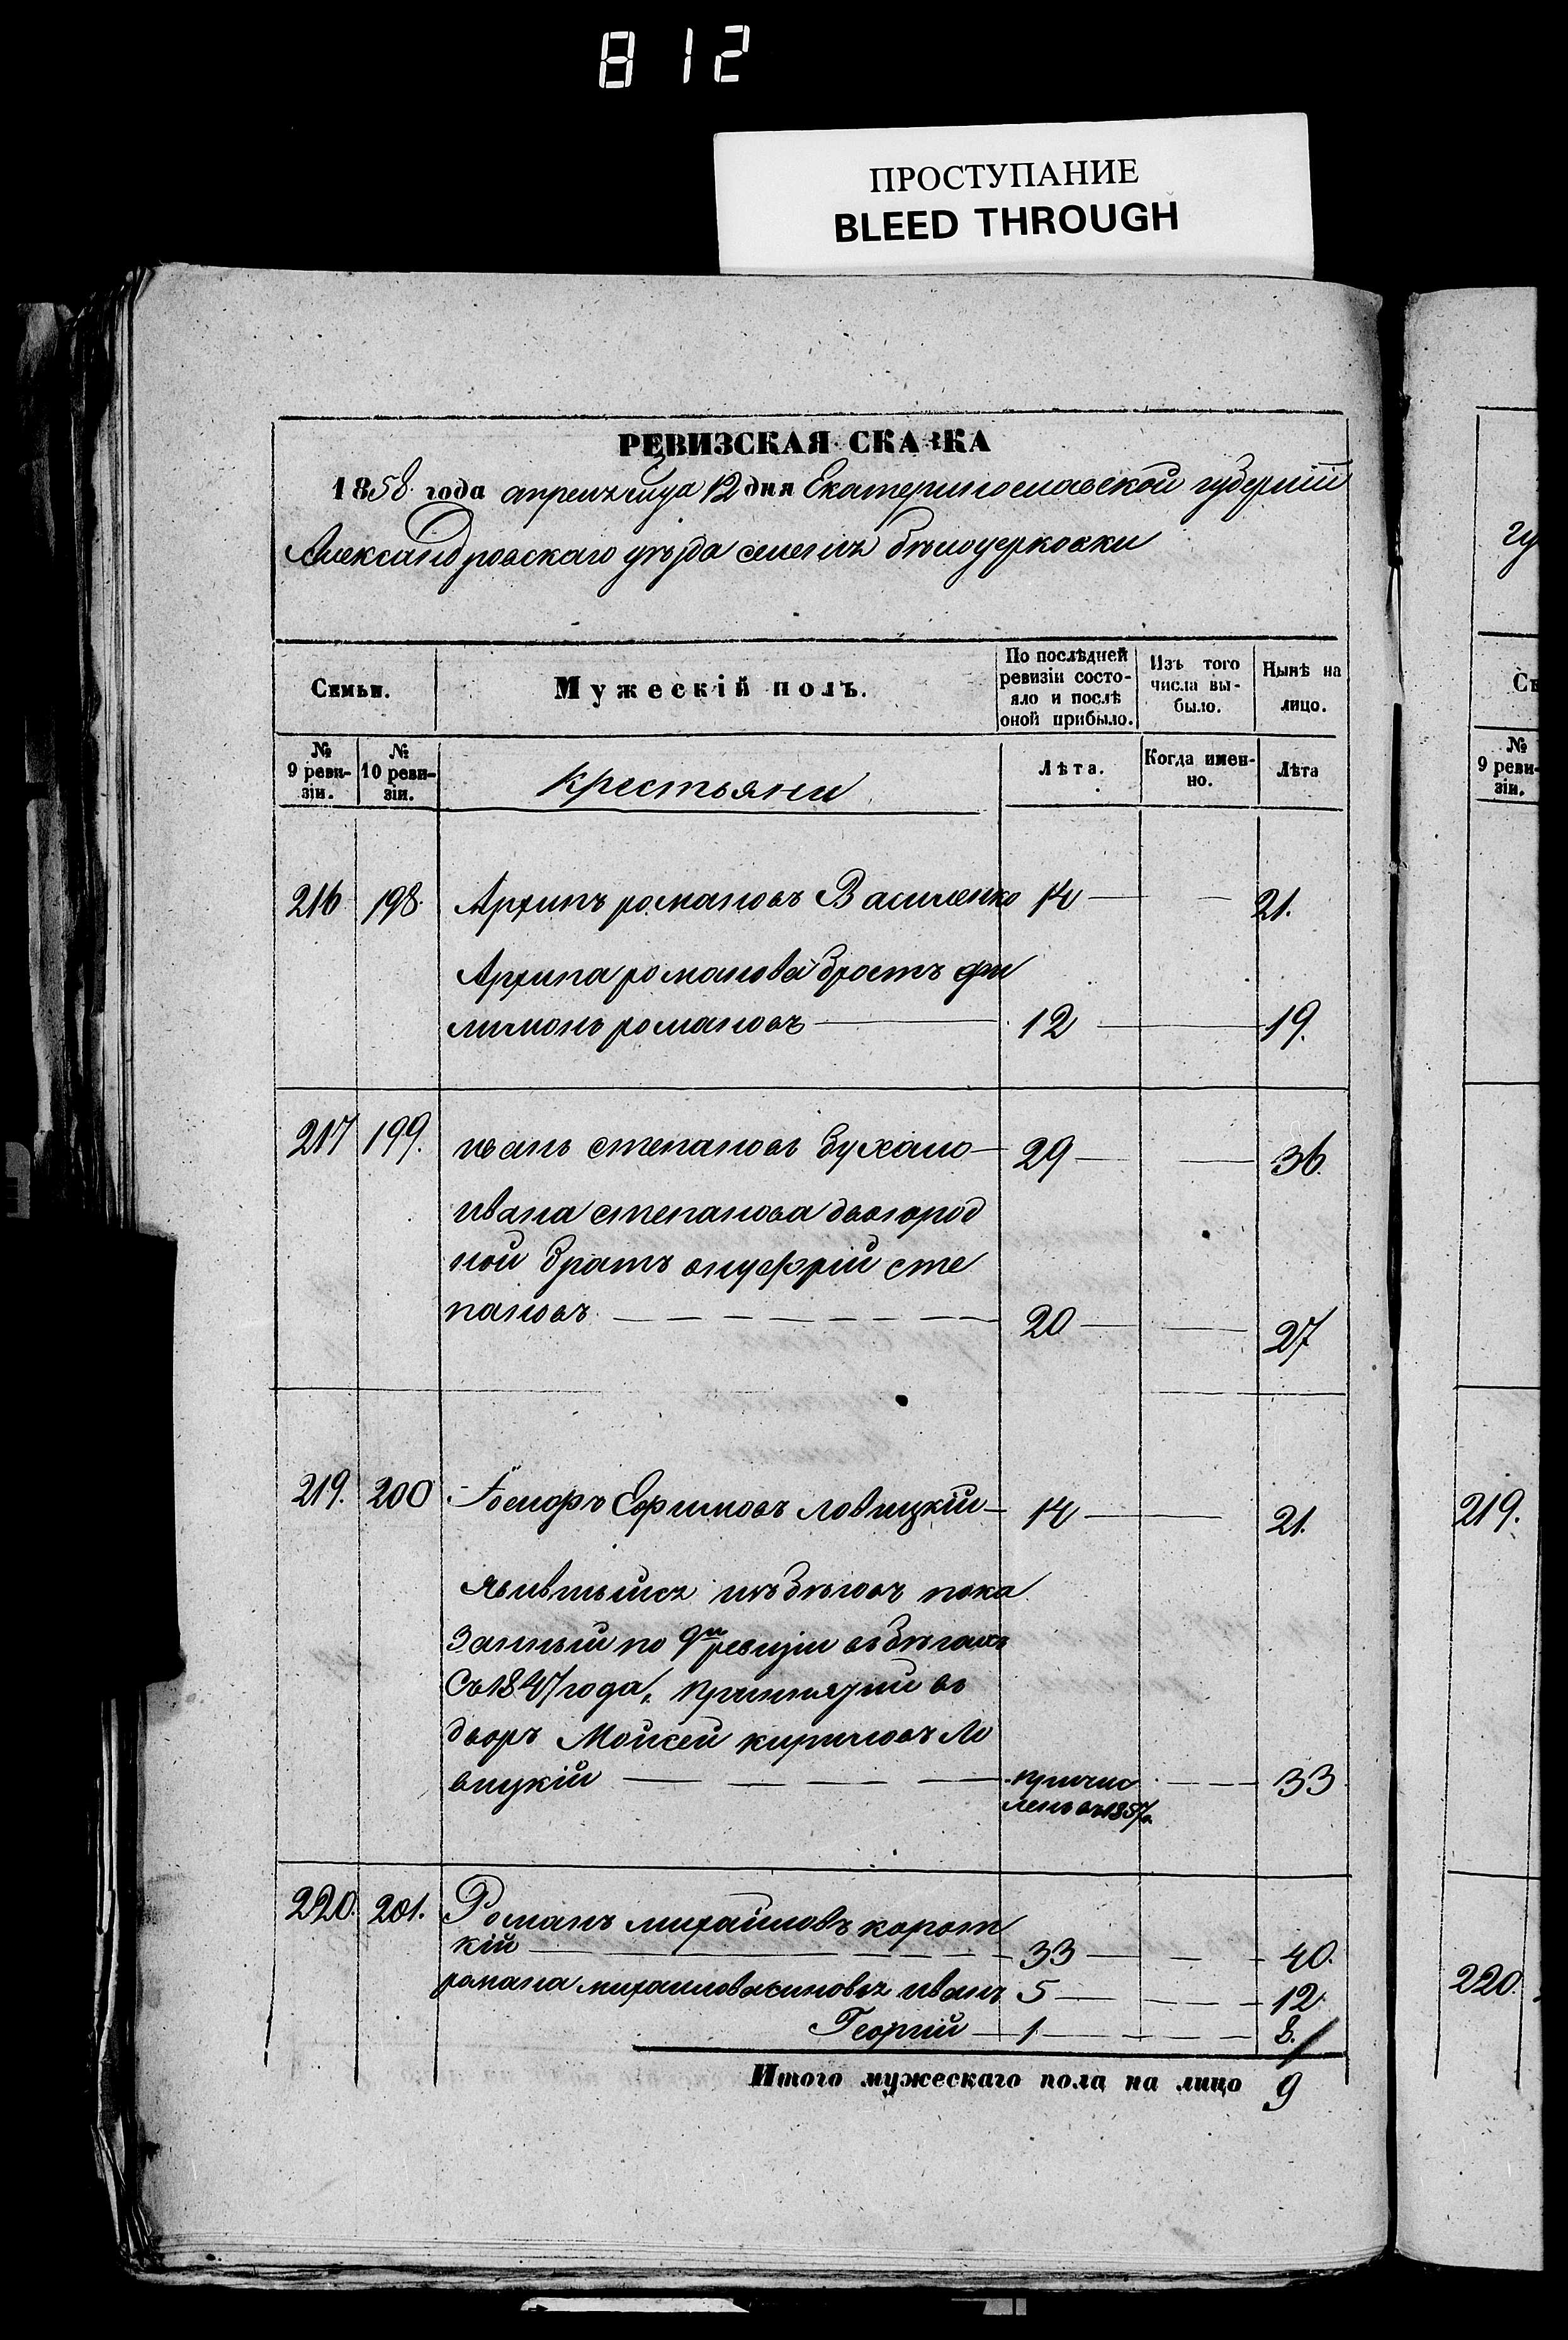 812
ПРОСТУПАНИЕ
BLEED THROUGH
РЕВИЗСКАЯ СКАЗКА
1858 года апреля мца 12 дня Екатеринославской губернии
Александровскаго уезда селенія белоцерковки
Семьи.
Мужескій полъ.
По послѣдней ревизіи состо-
яло и послѣ
оной прибыло.
Изъ того
числа вы-
было.
Нынѣ на
лицо.
№
9 реви-
зіи.
№
10 реви-
зіи.
крестьяни
Лѣта.
Когда имен-
но.
Лѣта
216 198. Архипъ романовъ Василенко 14 21.
Архипа романова братъ фи
лимонъ романовъ 12 19.
217 199. иванъ степановъ Бухало 29 36.
ивана степанова двоюрод
ной братъ онуфрій сте
пановъ 20 27
219. 200 Іосифъ Ефимовъ ловицкій 14 21.
явившыйся изъ бѣговъ пока
занный по 9й ревизіи въ бѣгахъ
съ 1847 года, въ
дворъ Мойсей кириловъ Ло
вицкій причис 33
ленъ въ 1857 г.
220. 201. Романъ михайловъ корот
кій 33 40.
романа михаилова синовья иванъ 5 12.
Георгій 1 8.
Итого мужескаго пола на лицо 9
гу
Се
№
9 реви-
зіи.
219.
220.